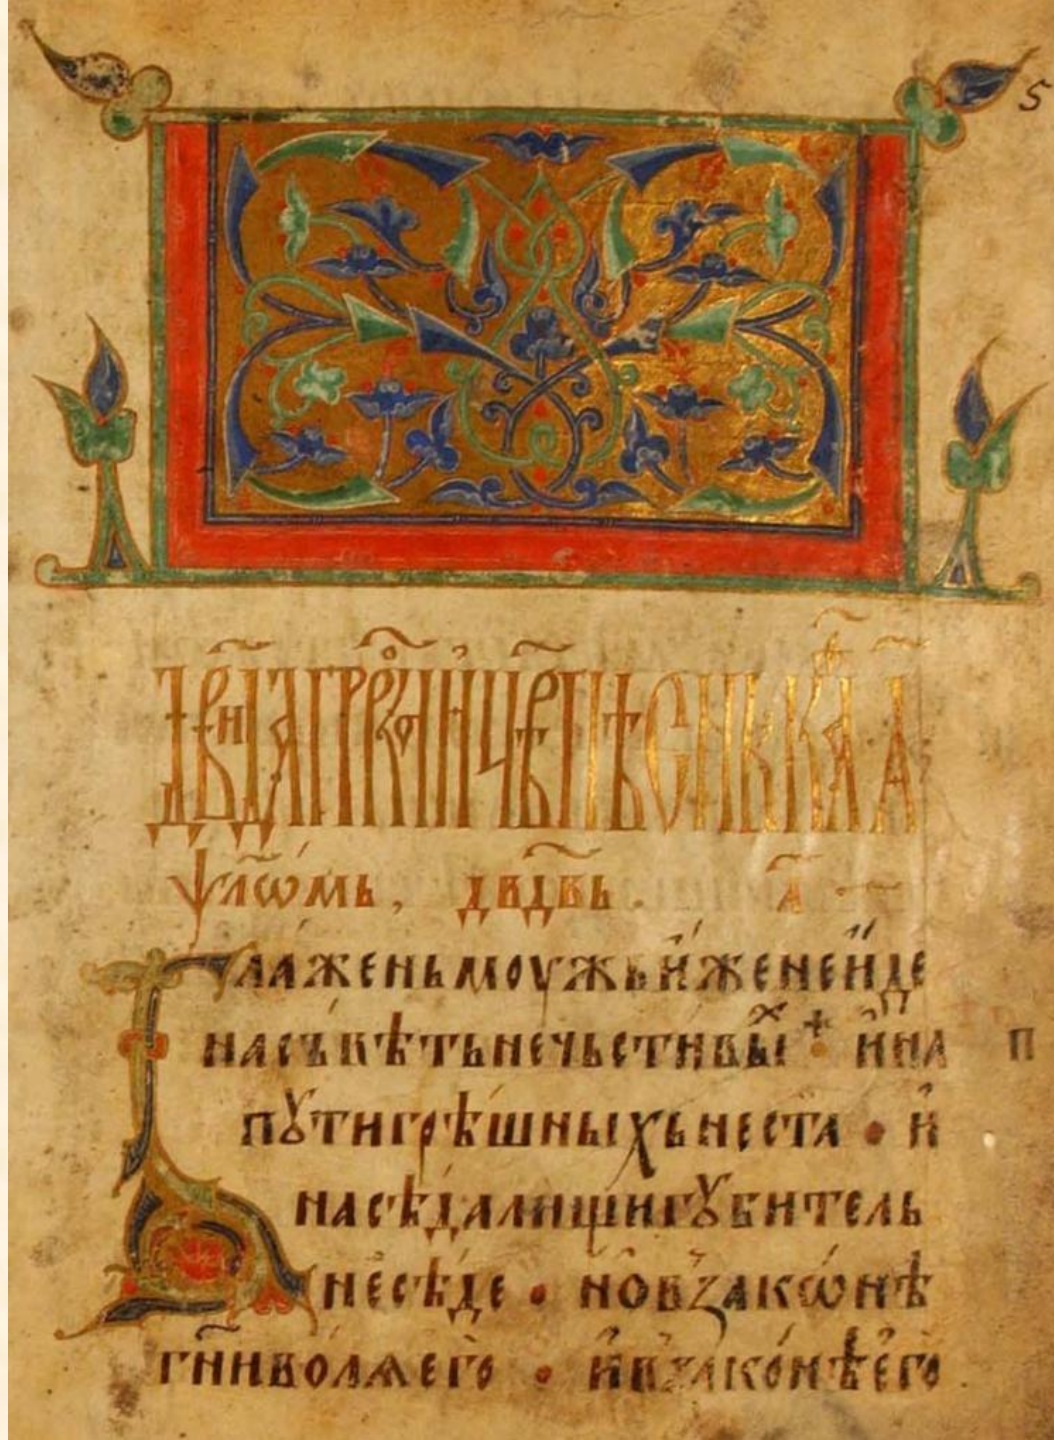 5
ѱл҃ѡмь, дв҃двь. а҃
Блаженьмоужьиженеиде
насъвѣтьнечьстивыⷯ + ина
п
пꙋтигрѣшныхьнеста • и
насѣдалищигꙋбитель
несѣде • новзаконѣ
гн҃иволꙗего • ивзаконѣего